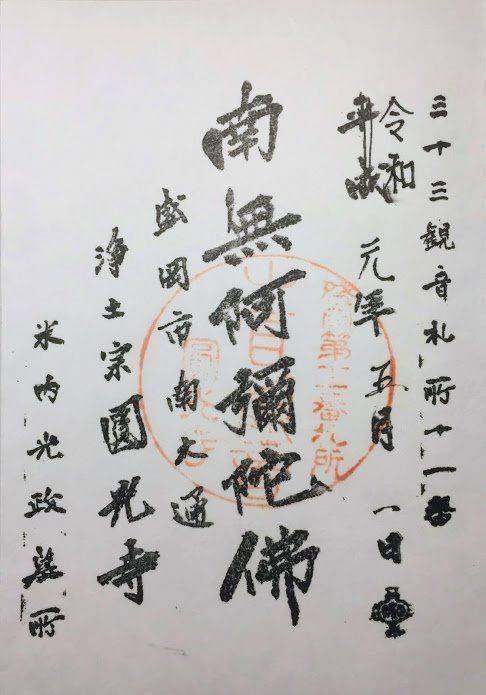 三十三観音札所十一番
平成
令和
元年五月一日
南無阿彌陀佛
盛岡市南大通
浄土宗圓光寺
米内光政墓所
第十一番札所